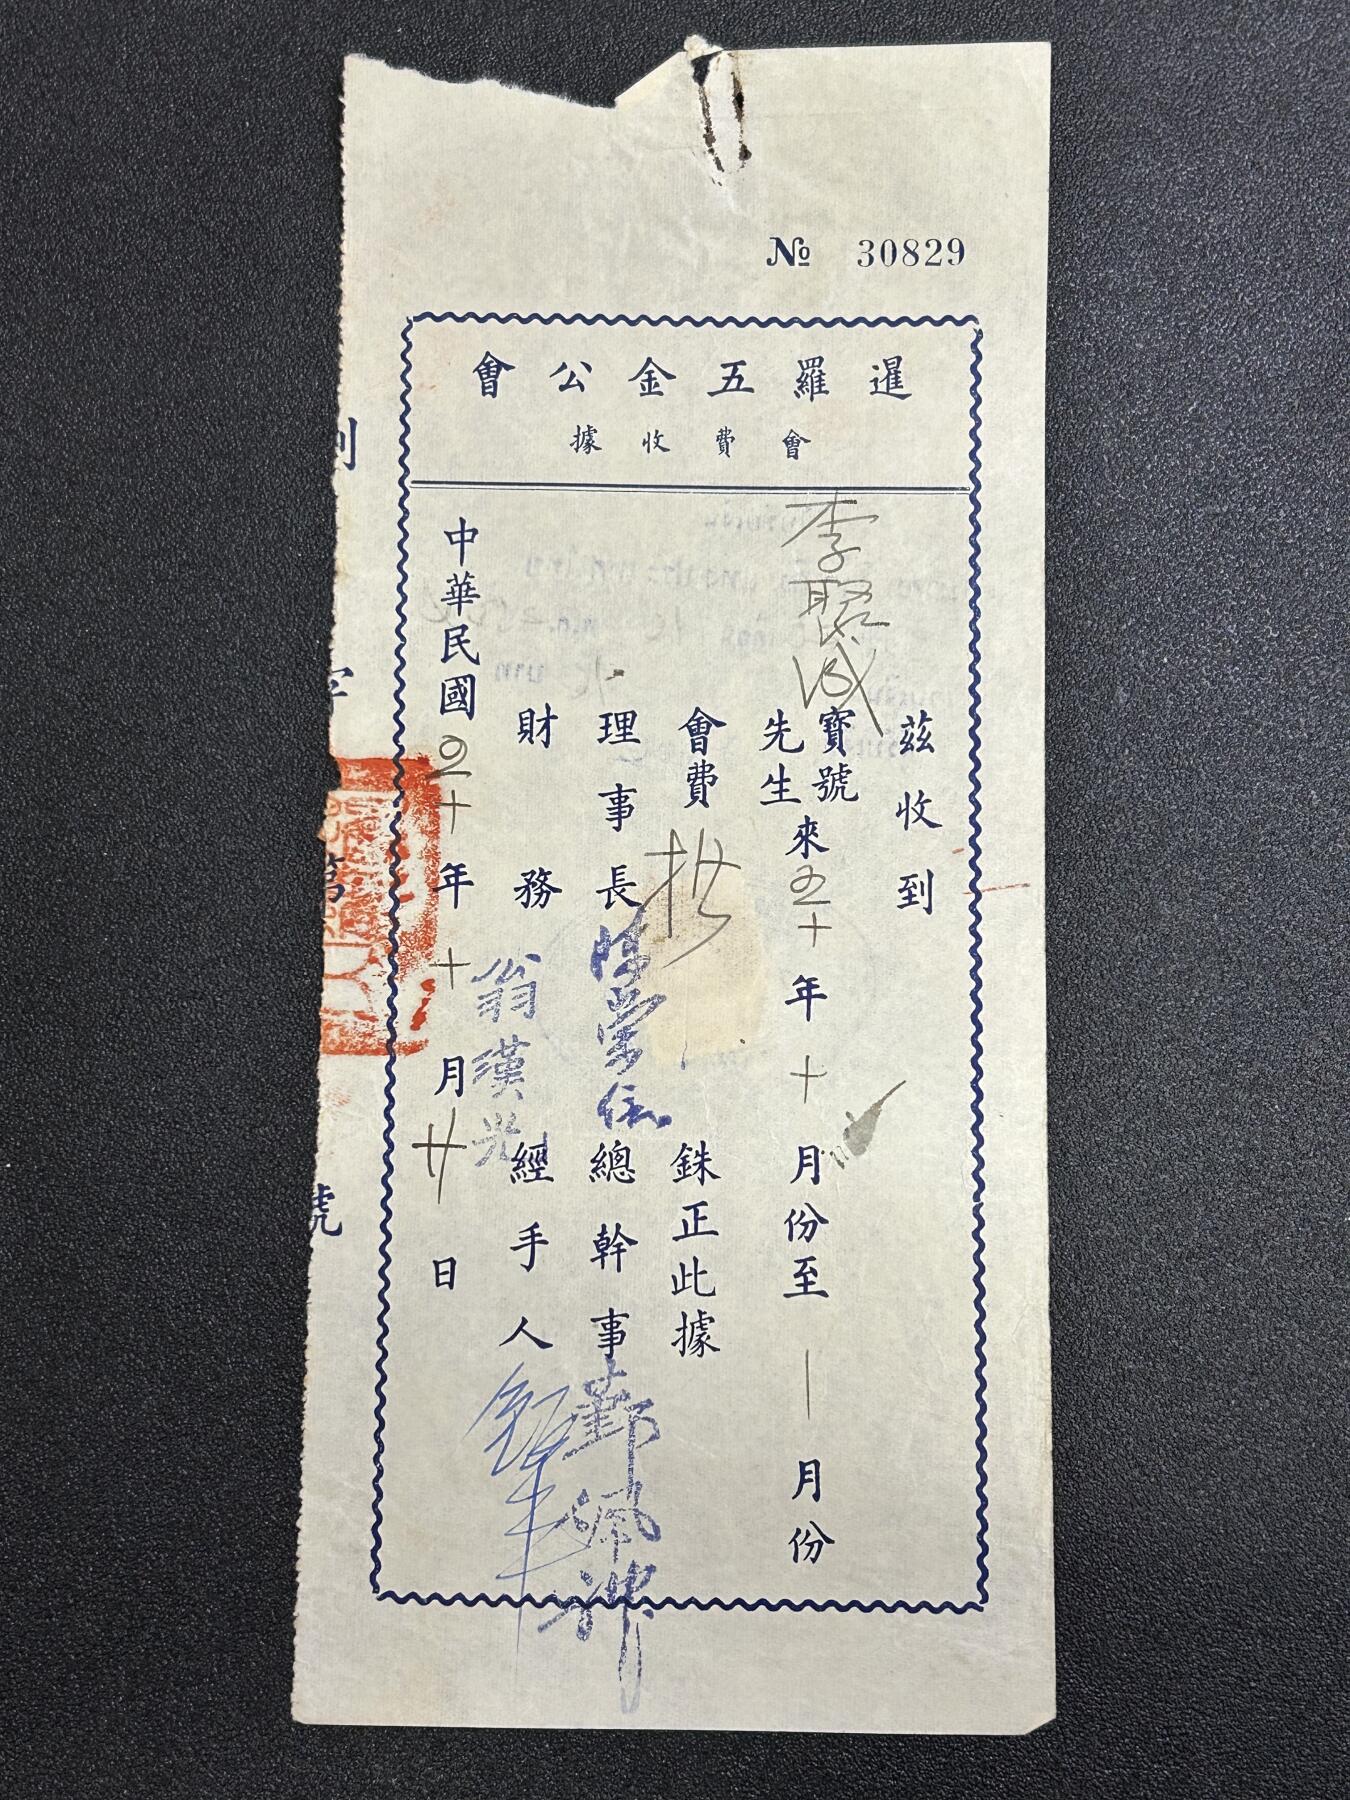 № 30829
暹羅五金公會
會費收據
茲收到
李聰成
寶號
先生
來五十年十月份至 月份
會費 拾 銖正此據
理事長 陳榮信 總幹事 鄞珮璣
財務 翁漢光 經手人
中華民國五十年十月廿日
第
號